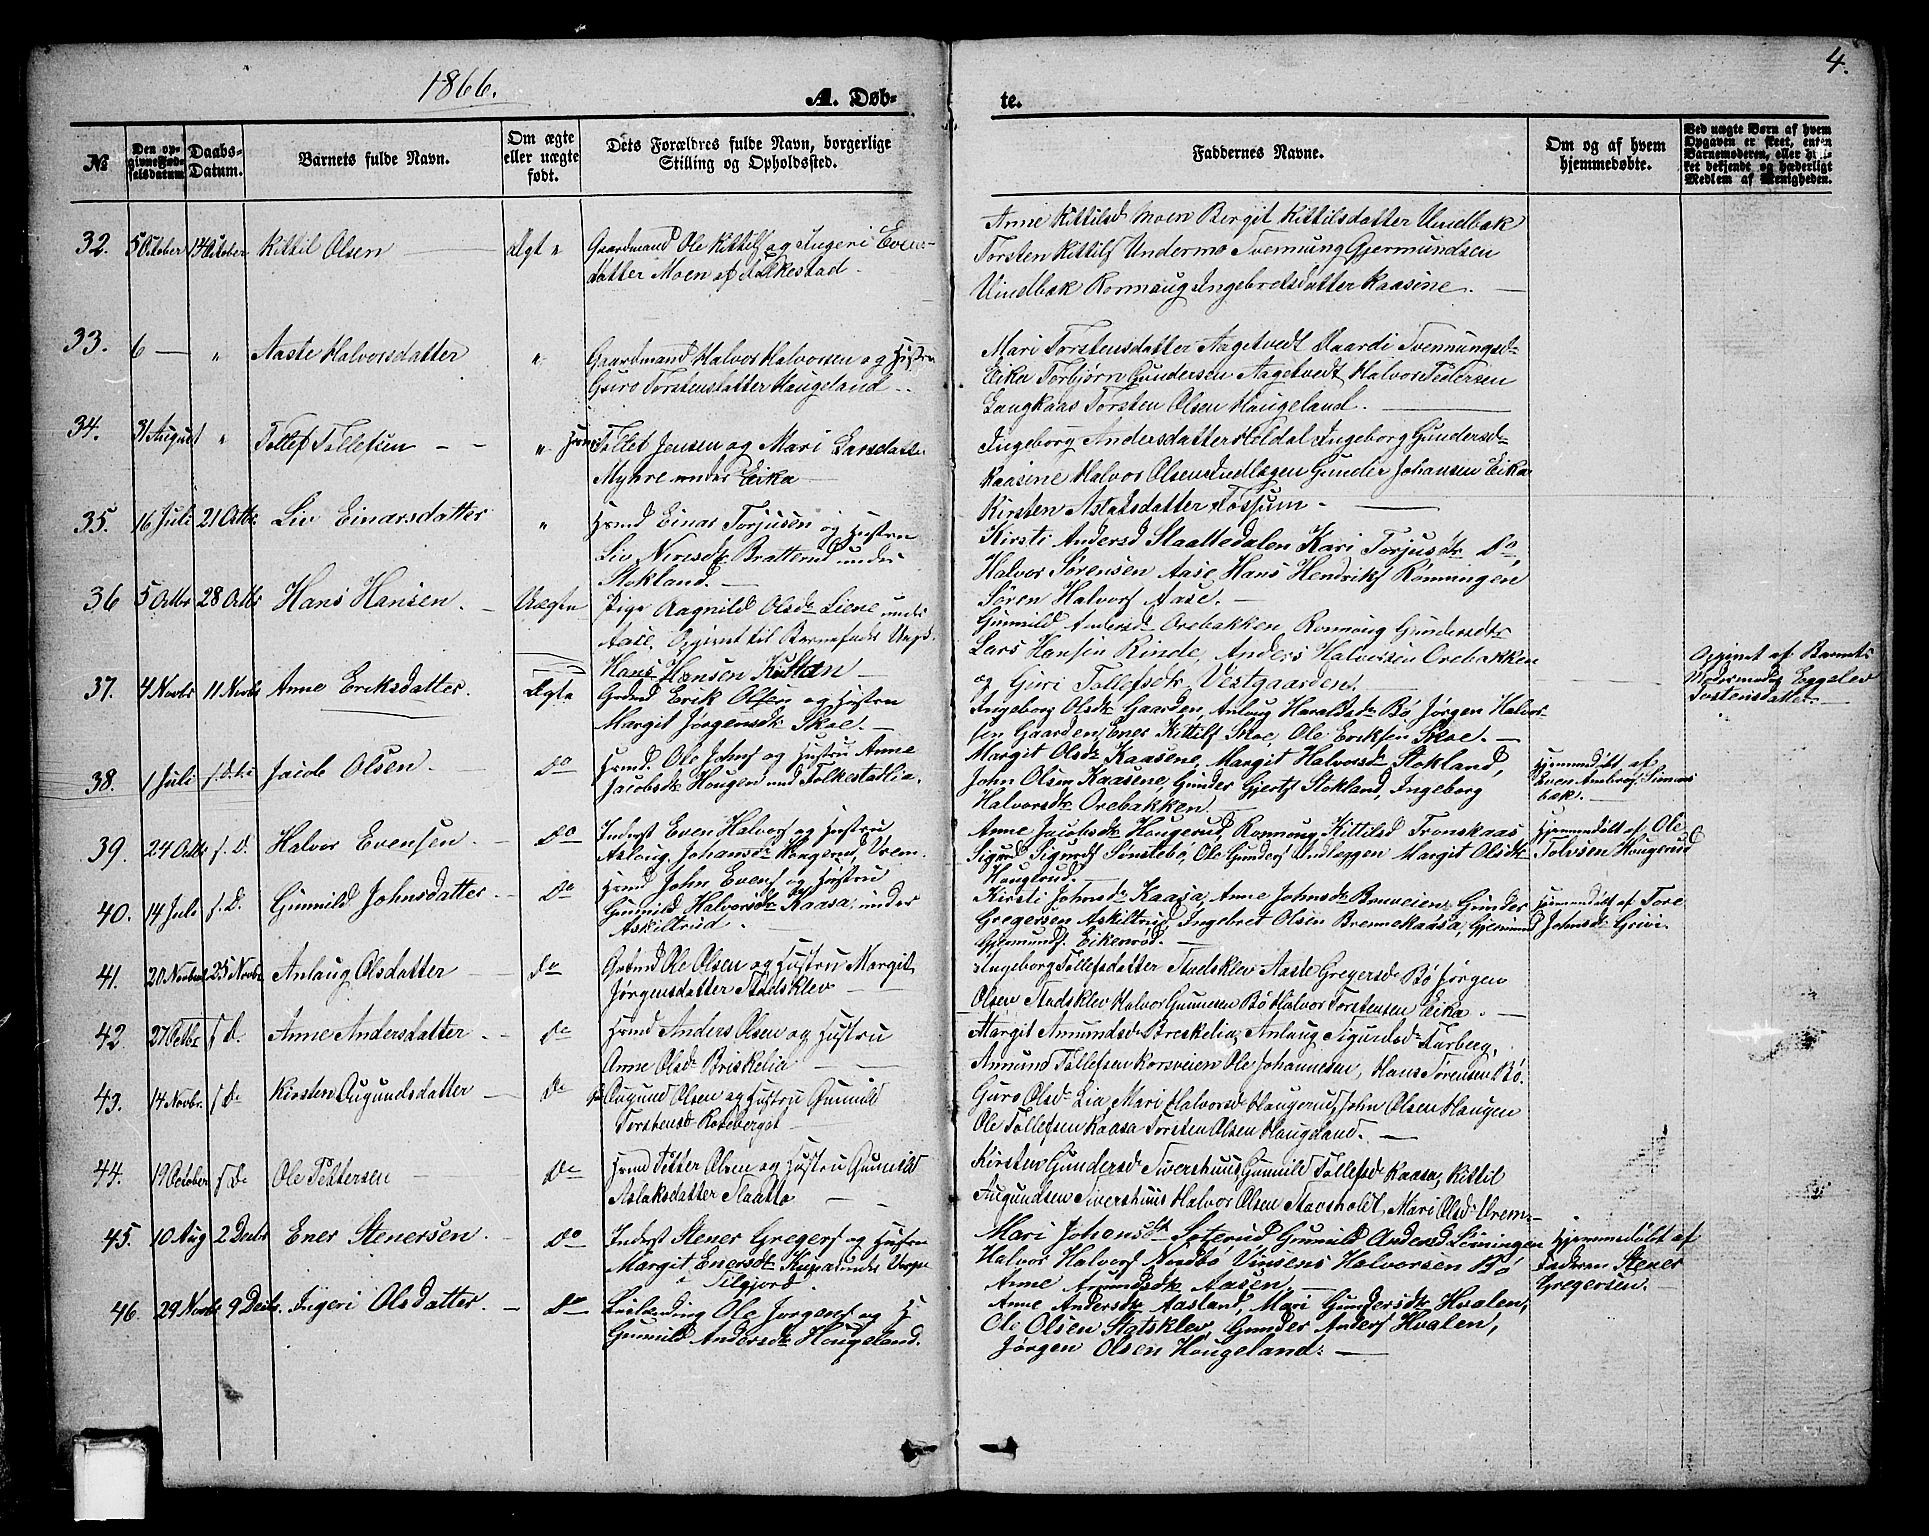 1866.
A. Døb-
te.
4.
№
Den op-
givne Fød-
selsdatum
Daabs-
Datum.
Barnets fulde Navn.
Om ægte
eller uægte
født.
Dets Forældres fulde Navn, borgerlige
Stilling og Opholdssted.
Faddernes Navne.
Om og af hvem
hjemmedøbte.
Ved uægte Børn af hvem
Opgaven er skeet, enten
Barnemoderen, eller
ket bekjendt og hæderligt
Medlem af Menigheden.
32. 5 October 14 October Kittil Olsen Ægt "
Gaardmand Ole Kittilf og Ingeri Even-
datter Moen af Folkestad.
Anne Kittilsd Moen Bergit Kittilsdatter Vindbak
Torsten Kittilf Undermo Tvennung Gjermundsen
Vindbak Ronnaug Ingebretsdatter Kaasine.
33. 6 " Aaste Halvorsdatter "
Gaardmand Halvor Halvorsen og Hustru
Guro Torstensdatter Haugeland.
Mari Torstensdatter Aagetvedt Haardi Tvennungsd
Eika Torbjørn Gundersen Aagetvedt Halvor Pedersen
Langkaas Torsten Olsen Haugeland.
34. 31 August " Tollef Tollefsen "
Tollef Jensen og Mari Larsdatter
Myhre under Eika
Ingeborg Andersdatter Holdal Ingeborg Gundersd
Kaasine Halvor Olsen Gunder Johansen Eika
Kirsten Aslaksdatter Fossum.
35. 16 Juli 21 Octbr Liv Einarsdatter "
Hrmd Einar Torjusen og Hustru
Liv Bratterud under
Stokland.
Kirsti Andersd Slaattedalen Kari Torjusdr Do,
Halvor Sørensen Aase, Hans Hendrikf Rønningen
Søren Halvorf Aase.
36 5 Octbr 28 Octbr Hans Hansen. Uægte
Pige Ragnild Olsdr Liene under
Aase. Opgivet til Barnefader Ungk.
Hans Hansen
Gunnild Andersdr Orebakken, Ronnoug Gundersdr
Lars Hansen Rinde, Anders Halvorsen Orebakken
og Guri Tollefsdr Vestgaarden.
Opgivet af Barnets
Eggelev
Tostensdatter.
37. 4 Novbr 11 Novbr Anne Eriksdatter. Ægte
Grdmd Erik Olsen og Hustru
Margit Jørgensdr Skoe.
Ingeborg Olsdr Gaarden, Anlaug Haraldsdr Bø Jørgen Halvor-
sen Gaarden, Ener Kittilf Skoe, Ole Eriksen Skoe.
38. 1 Juli Jacob Olsen. Do
Hrmd. Ole Johnf og Hustru Anne
Jacobsdr Hougen und Folkestadlia.
Margit Olsdr Kaasene, Margit Halvorsdr Stokland,
John Olsen Kaasene, Gunder Gjertf Stokland, Ingeborg
Halvorsdr Orebakken.
Hjemmedøbt af
Even
bæk.
39. 24 Octbr s. D. Halvor Evensen. Do
Inderst Even Halvorf og Hustru
Aslaug Johansdr Hougerud, Vrem.
Anne Jacobsdr Hougerud, Ronnoug Kittilsd Tronskaas
Sigurd Sigurdf Sønstebø, Ole Gunderf Margit Olsdr
Hougerud.
Hjemmedøbt af Ole
Tolvsen Hougerud
40. 14 Juli s. D. Gunnild Johnsdatter Do
Hrmd John Evenf og Hustru
Gunnild Halvorsdr Kaasa, under
Askiltrud.
Kirsti Johnsdr Kaasa, Anne Johnsdr Gunder
Gregersen Askiltrud, Ingebret Olsen Brennekaasa, Gjermund
Gjermundf Eikenrød.
Hjemmedøbt af Tore
Johnsdr
41. 20 Novbr 25 Novbr Anlaug Olsdatter Do
Grdmd Ole Olsen og Hustru Margit
Jørgensdatter Stadsklev
Ingeborg Tollefsdatter Stadsklev Aaste Gregersd Bø Jørgen
Olsen Stadsklev Halvor Gunnersen Bø Halvor Torstensen Eika.
42. 27 Octbr s D. Anne Andersdatter Do
Hrmd Anders Olsen og Hustru
Anne Olsdr Briskelia
Margit Amundsd Breskelia, Anlaug Sigurdsd Farberg,
Amund Tollefsen Korsveien Ole Johannesen, Hans Sørensen Bø.
43. 14 Novbr. s D. Kirsten Augundsdatter Do
Augund Olsen og Hustru Gunnild
Torstensd Roteberget
Guro Olsd Lia Mari Halvorsd Haugerud, John Olsen Haugen
Ole Tollefsen Kaasa Torsten Olsen Haugeland.
44. 19 October s D. Ole Pettersen Do
Hrmd Petter Olsen og Hustru Gunnild
Aslaksdatter Slaatta
Kirsten Gundersd Tvershuus Gunnild Tollefsd Kaasa, Kittil
Augundsen Tvershuus Halvor Olsen Stavsholdt, Mari Olsd Vrem.
45. 10 Aug 2 Decbr Ener Stenersen. Do
Inderst Stener Gregerf og Hustru
Margit Enersdr under
i Tilgjord.
Mari Gunnild Andersd
Halvor Halvorf Nordbø Vinsens Halvorsen Bø
Anne Amundsdr Aasen.
Hjemmedøbt af
Faderen Stener
Gregersen.
46. 29 Novbr 9 Decbr. Ingeri Olsdatter. Do
Ole Jørgenf og H
Gunnild Andersdr Hougeland.
Anne Andersdr Aasland, Mari Gundersdr Hvalen,
Ole Olsen Statsklev, Gunder Anderf Hvalen,
Jørgen Olsen Hougeland.